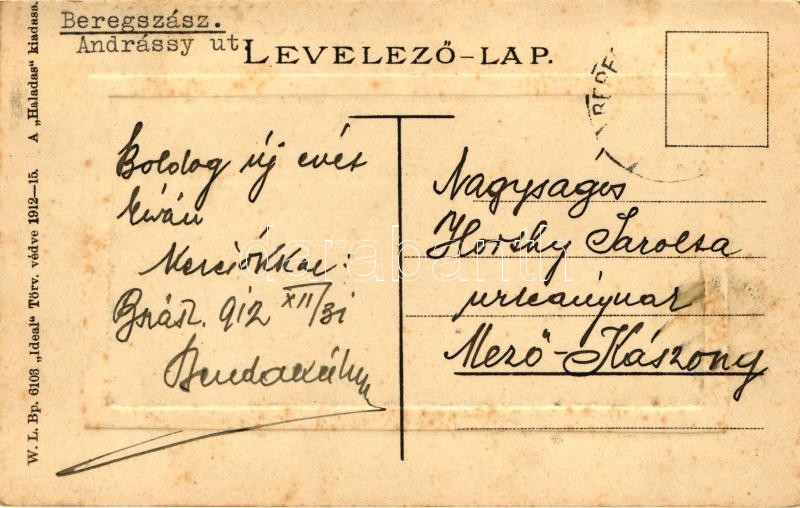 Beregszász.
Andrássy ut.
LEVELEZŐ-LAP.
BEREG
Boldog új évet
kíván
Bszász. 912 XII/31
Nagyságos
Horthy Sarolta
urleánynak
Mező-Kászony
W. L. Bp. 6103 „Ideal" Törv. védve 1912—15. A „Haladas" kiadasa.
darabanth